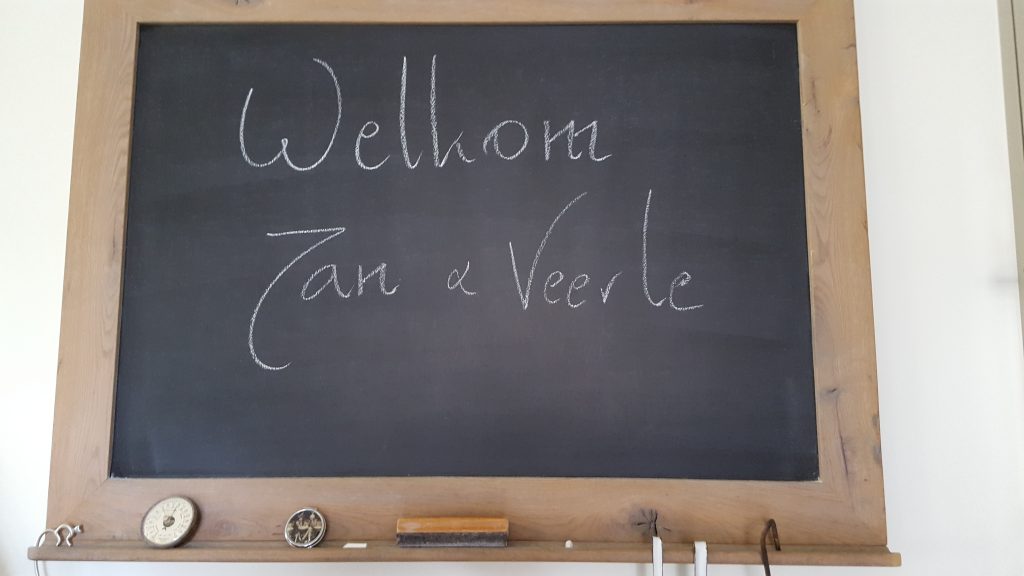 Welkom
Jan & Veerle